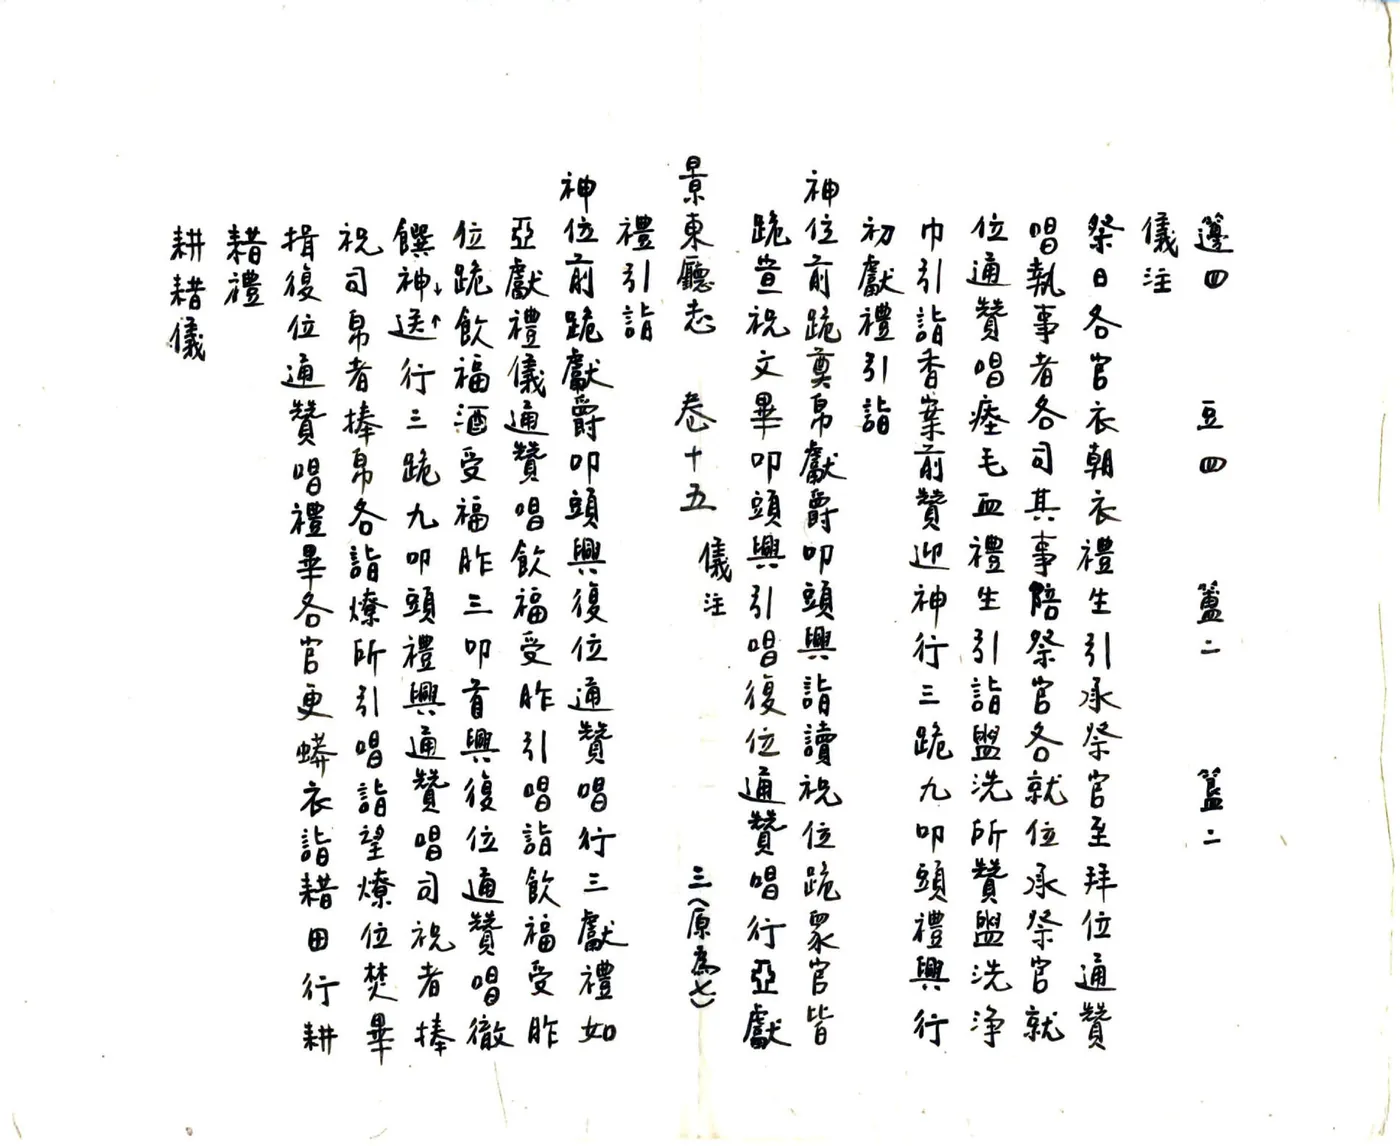 籩四 豆四 簠二 簋二
儀注
祭日各官衣朝衣禮生引承祭官至拜位通贊
唱執事者各司其事陪祭官各就位承祭官就
位通贊唱瘞毛血禮生引詣盥洗所贊盥洗淨
巾引詣香案前贊迎神行三跪九叩頭禮興行
初獻禮引詣
神位前跪奠帛獻爵叩頭興詣讀祝位跪眾官皆
跪宣祝文畢叩頭興引唱復位通贊唱行亞獻
景東廳志 卷十五 儀注 三(原為七)
禮引詣
神位前跪獻爵叩頭興復位通贊唱行三獻禮如
亞獻禮儀通贊唱飲福受胙引唱詣飲福受胙
位跪飲福酒受福胙三叩首興復位通贊唱徹
饌神送行三跪九叩頭禮興通贊唱司祝者捧
祝司帛者捧帛各詣燎所引唱詣望燎位焚畢
揖復位通贊唱禮畢各官更蟒衣詣耤田行耕
耤禮
耕耤儀